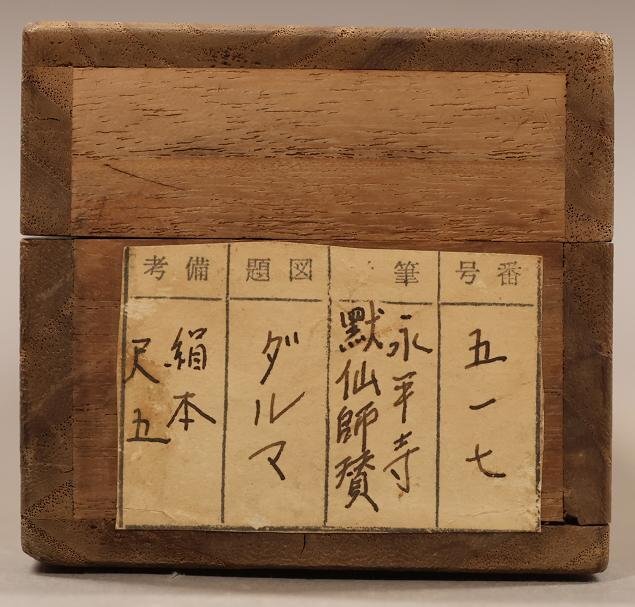 番号
五一七
筆
永平寺
黙仙師賛
図題
ダルマ
備考
絹本
尺五